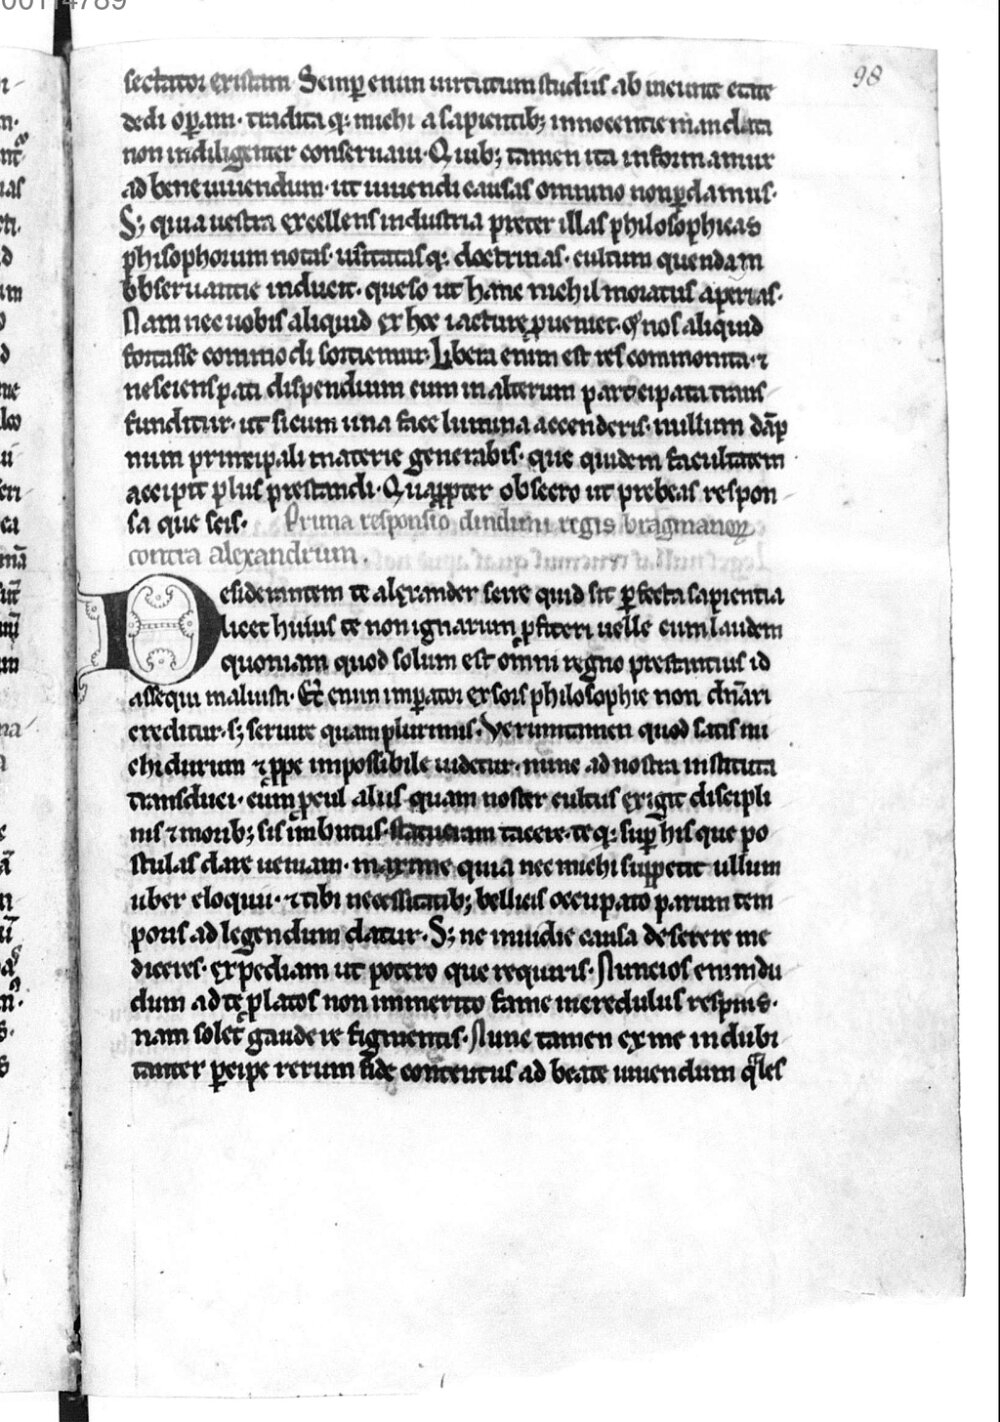 98
sectator existam. Semp̲ enim uirtutum studiis ab ineunte etate
dedi op̲am. tradita q; michi a sapientib; innocentie mandata
non indiligenter conseruaui. Quib; tamen ita informamur
ad bene uiuendum. ut uiuendi causas omnino non p̲damus.
S; quia uestra excellens industria preter illas philosophicas
phisophorum notas. usitatas q; doctrinas. cultum quendam
obseruantie inducit. queso ut hanc nichil moratus aperias.
Nam nec uobis aliquid ex hoc iacturę ꝓueniet. & nos aliquid
fortasse commodi sortiemur. Libera enim est res commonita. ⁊
nesciens pati dispendium cum in alterum participata trans
funditur. ut si cum una face lumina accenderis. nullum dāp
num principali materie generabis. que quidem facultatem
accipit plus prestandi. Quaꝓpter obsecro ut prebeas respon
sa que scis. Prima responsio dindimi regis bragmanoꝝ
contra alexandrum.
Desiderantem te alexander scire quid sit p̲fecta sapientia
licet huius te non ignarum ꝓfiteri uelle cum laudem
quoniam quod solum est omni regno prestantius id
assequi maluisti. Et enim imp̲ator exsors philosophie non dn̄ari
creditur. s; seruire quamplurimis. Verumtamen quod satis mi
chi durum ⁊ ꝓpe impossibile uidetur. nunc ad nostra instituta
transduci. cum ꝓcul aliis quam noster cultus exigit discipli
nis ⁊ morib; sis imbutus. statueram tacere. te q; sup̲ his que po
stulas dare ueniam. maxime quia nec michi suppetit ullum
uber eloquii. ⁊ tibi necessitatib; bellicis occupato parum tem
poris ad legendum datur. S; ne inuidie causa deserere me
diceres. expediam ut potero que requiris. Nuncios enim du
dum ad te ꝓlatos non immerito fame incredulus respuis.
nam solet gaudere figmentis. Nunc tamen ex me indubi
tanter p̲cipe rerum fide contentus ad beate uiuendum q̄les